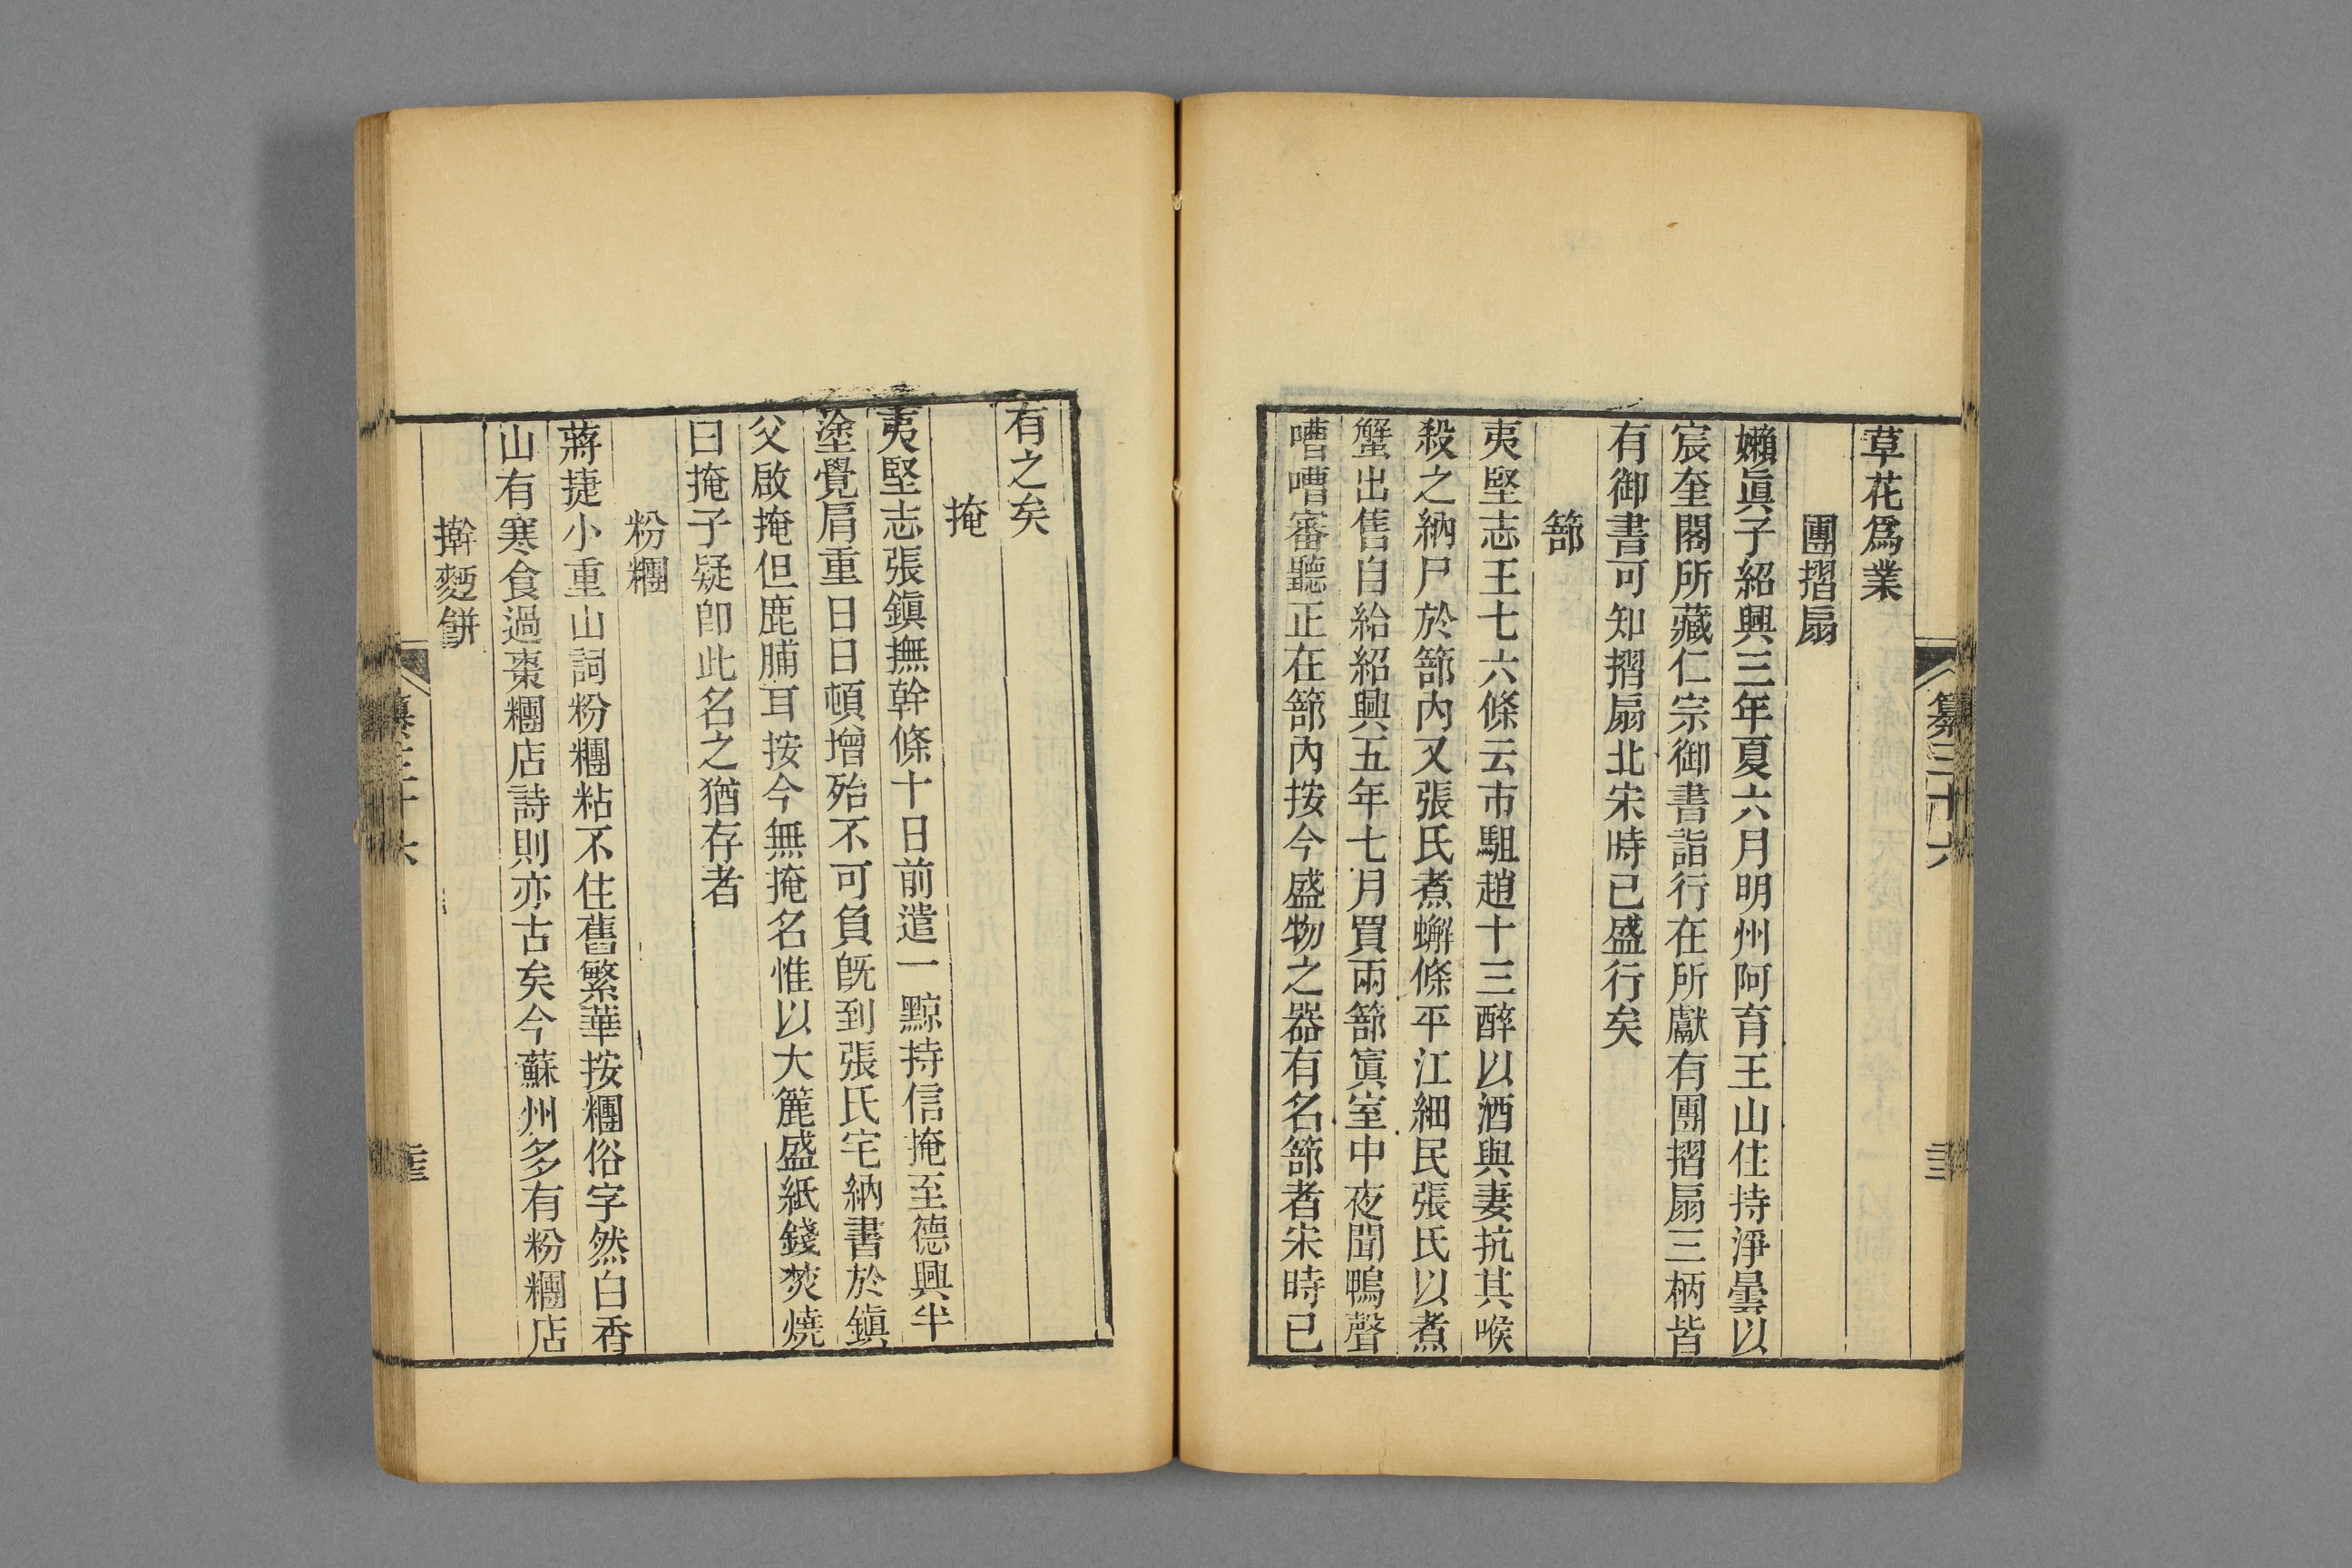 草花爲業
團摺扇
嬾眞子紹興三年夏六月明州阿育王山住持淨曇以
宸奎閣所藏仁宗御書詣行在所獻有團摺扇三柄皆
有御書可知摺扇北宋時已盛行矣
篰
夷堅志王七六條云市駔趙十三醉以酒與妻抗其喉
殺之納尸於篰內又張氏煮蠏條平江細民張氏以煮
蟹出售自給紹興五年七月買兩篰寘室中夜聞鴨聲
嘈嘈審聽正在篰內按今盛物之器有名篰者宋時已
有之矣
掩
夷堅志張鎭撫幹條十日前遣一黥持信掩至德興半
塗覺肩重日日頓增殆不可負旣到張氏宅納書於鎭
父啟掩但鹿脯耳按今無掩名惟以大簏盛紙錢焚燒
曰掩子疑卽此名之猶存者
粉糰
蔣捷小重山詞粉糰粘不住舊繁華按糰俗字然白香
山有寒食過棗糰店詩則亦古矣今蘇州多有粉糰店
擀麪餅
纂三十六